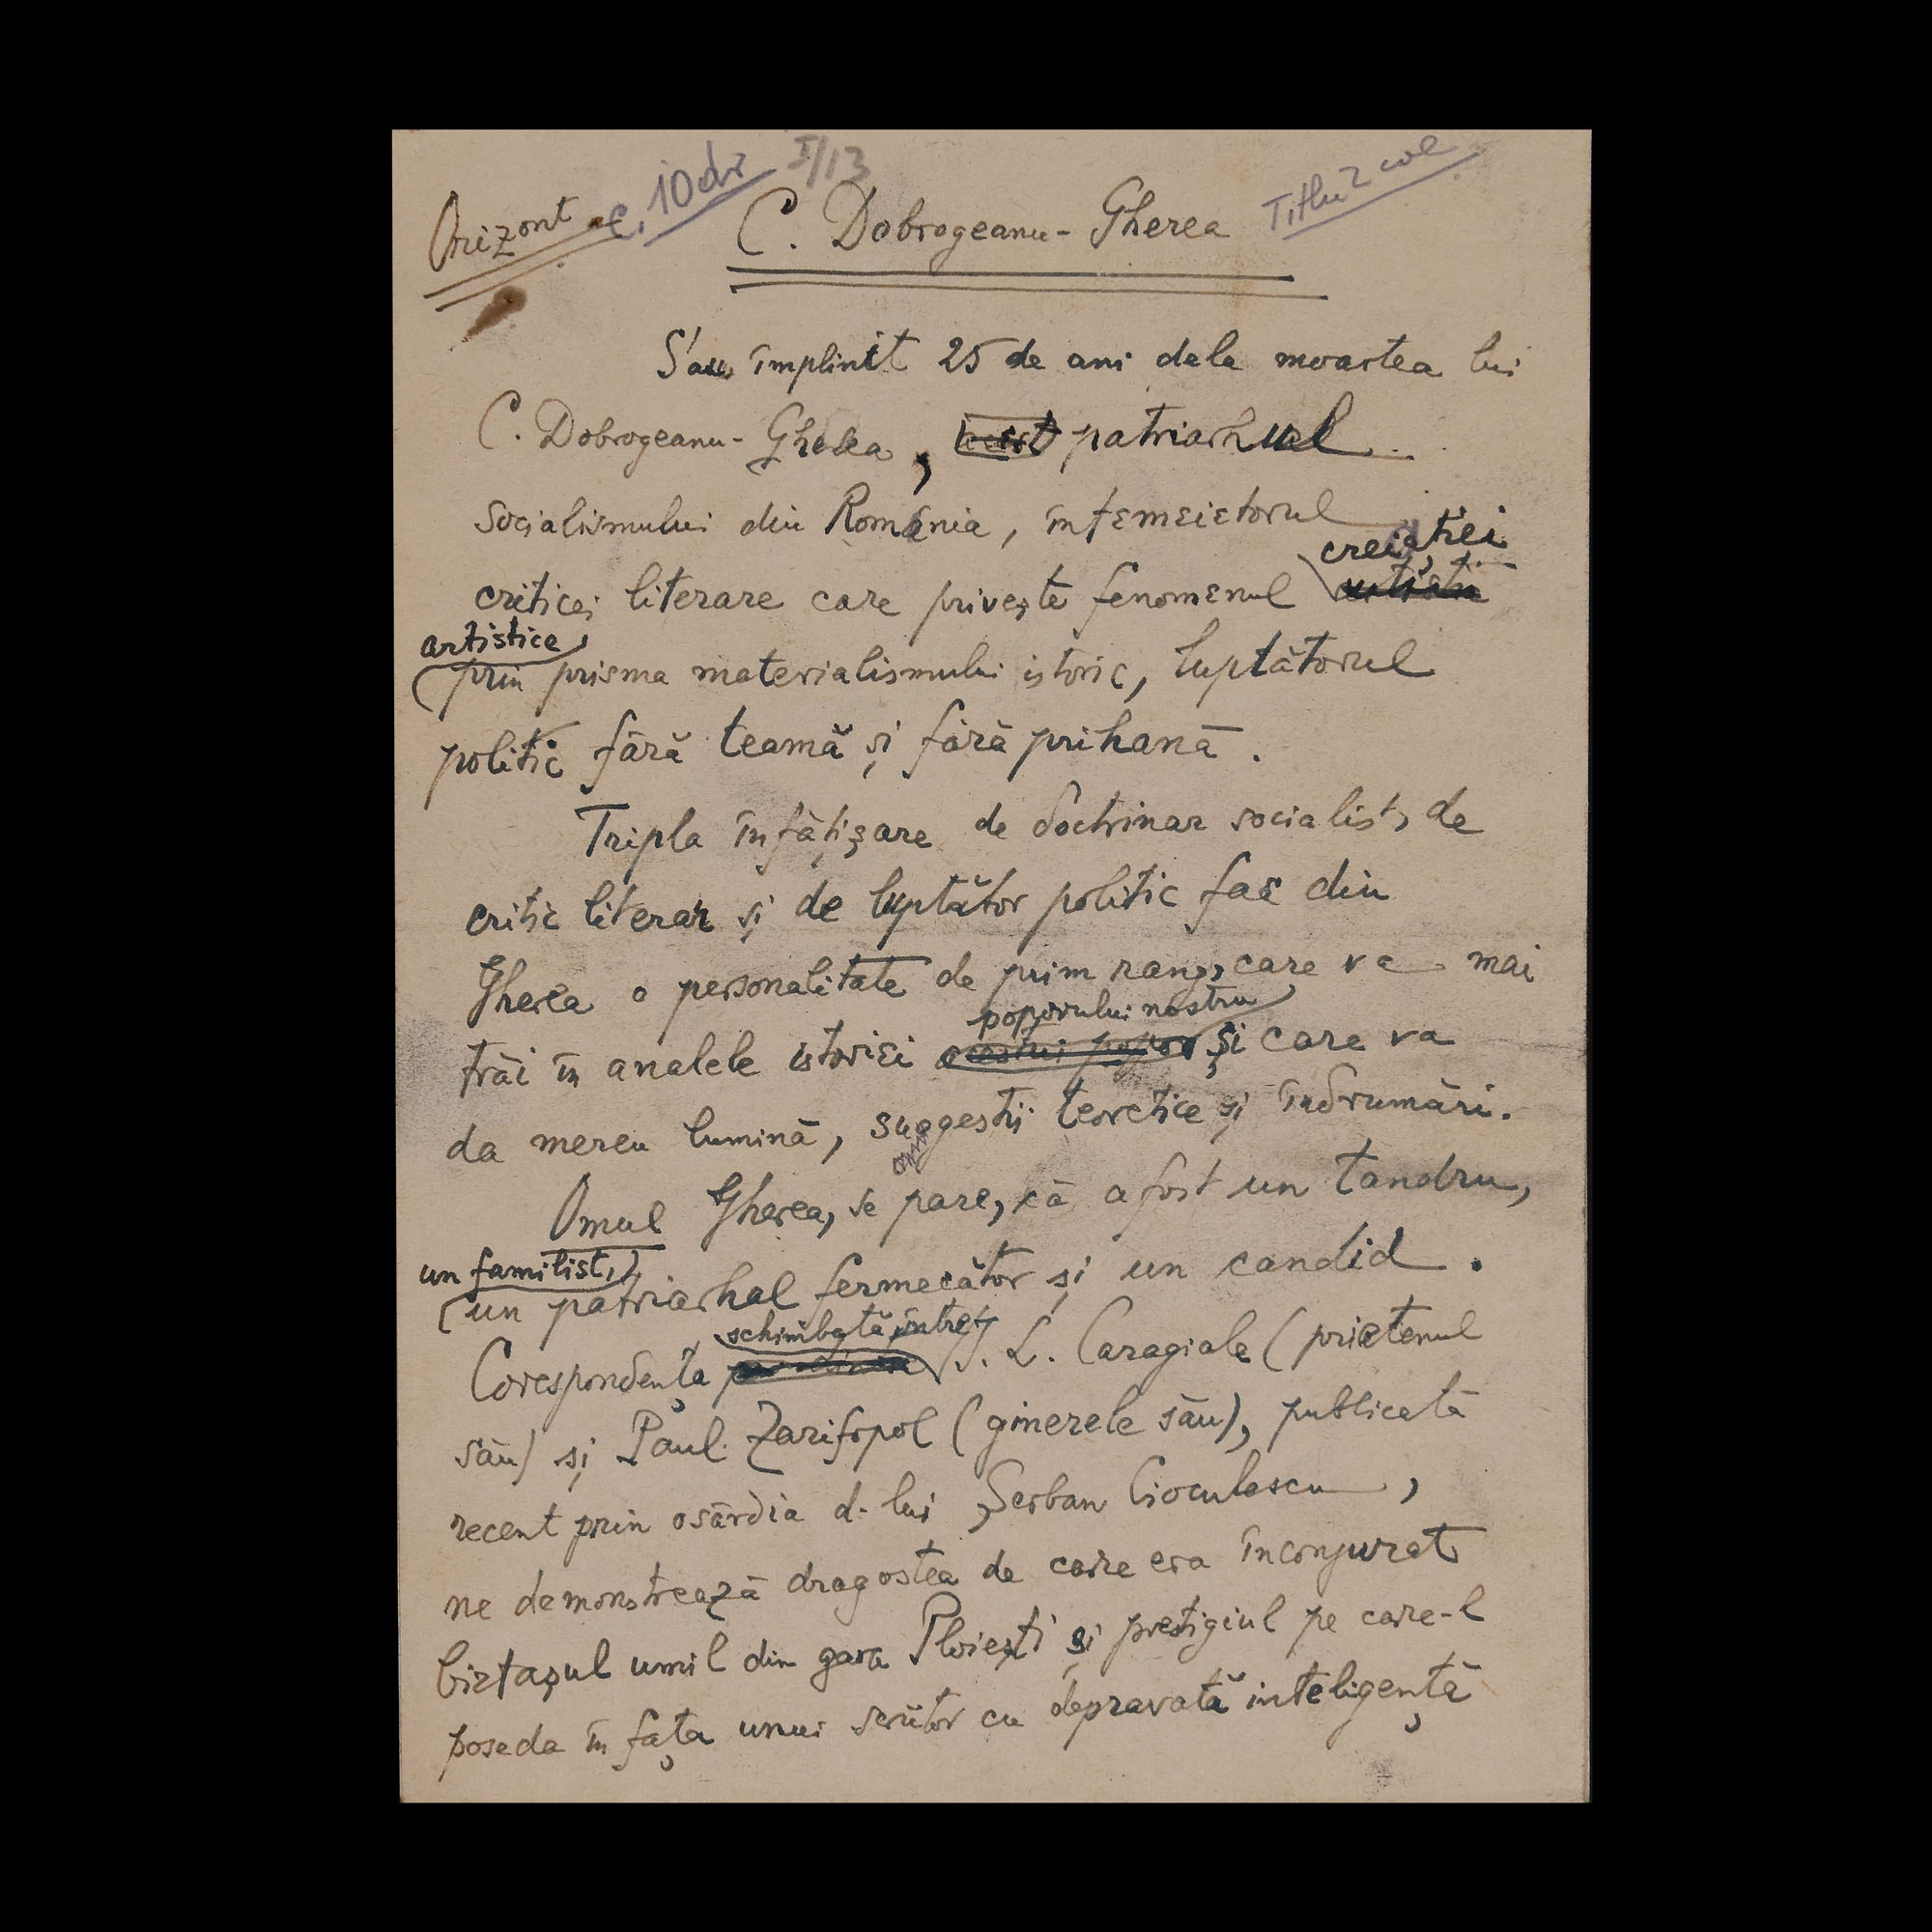 Orizont c. 10 dr I/13 Titlu 2 col
C. Dobrogeanu-Gherea
S'au împlinit 25 de ani dela moartea lui
C. Dobrogeanu-Gherea, acest patriarhul
socialismului din România, întemeietorul
creiației
criticei literare care privește fenomenul
artistice
prin prisma materialismului istoric, luptătorul
politic fără teamă și fără prihană.
Tripla înfățișare de doctrinar socialist, de
critic literar și de luptător politic fac din
Gherea o personalitate de prim rang, care va mai
poporului nostru
trăi în analele istoriei acestui popor și care va
da mereu lumină, suggestii teoretice și îndrumări.
Omul Gherea, se pare, că a fost un tandru,
un familist,
un patriarhal fermecător și un candid.
schimbată între
Corespondența I. L. Caragiale (prietenul
său) și Paul Zarifopol (ginerele său), publicată
recent prin osârdia d-lui Șerban Cioculescu,
ne demonstrează dragostea de care era înconjurat
birtașul umil din gara Ploiești și prestigiul pe care-l
poseda în fața unui scriitor cu depravată inteligență